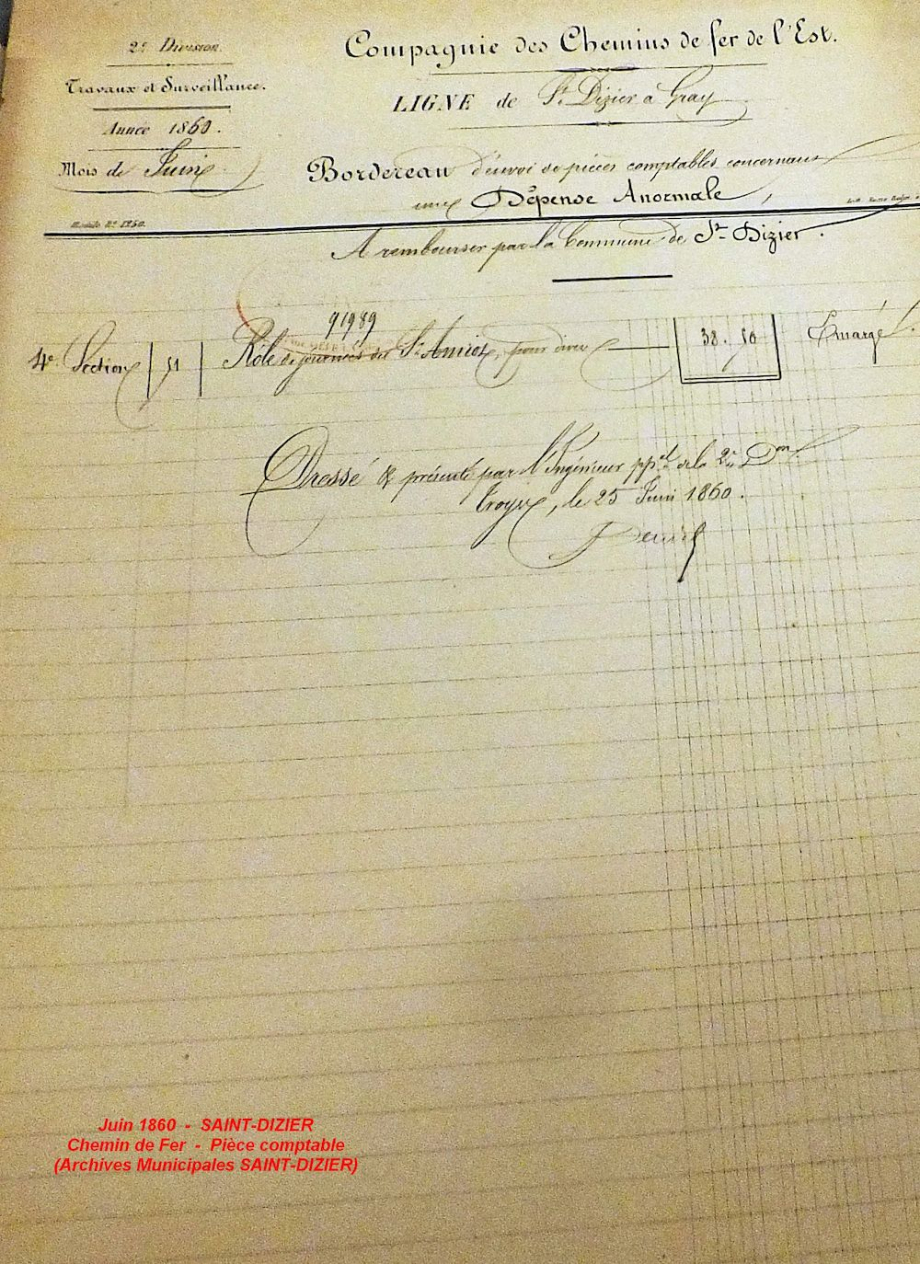 2e Division.
Travaux et Surveillance.
Année 1860.
Mois de Juin
Compagnie des Chemins de fer de l'Est.
LIGNE de St Dizier à Gray
Bordereau d'envoi de pièces comptables concernant
une Dépense Anormale
A rembourser par la Commune de St Dizier.
91989
4e Section 51 Rôle de journées du Sr Amiot, pour divers 38. 50 Emargé
Dressé & présenté par l'Ingénieur ppal de la 2e Don
Troyes, le 25 Juin 1860.
Juin 1860 - SAINT-DIZIER
Chemin de Fer - Pièce comptable
(Archives Municipales SAINT-DIZIER)